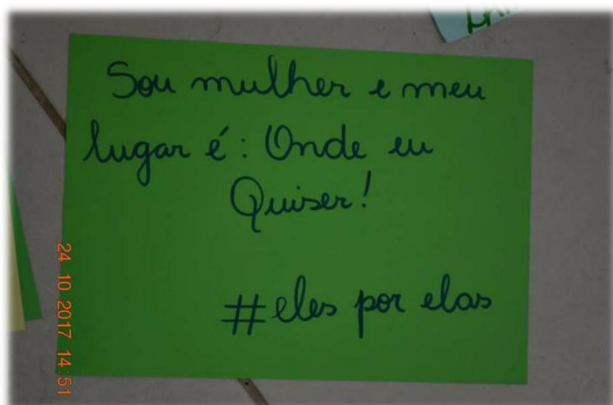 Sou mulher e meu
lugar é: Onde eu
Quiser!
#eles por elas
24 10 2017 14:51